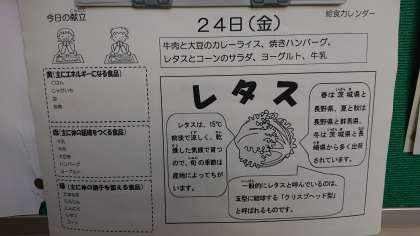 今日の献立
24日(金)
給食カレンダー
牛肉と大豆のカレーライス、焼きハンバーグ、
レタスとコーンのサラダ、ヨーグルト、牛乳
黄(主にエネルギーになる食品)
ごはん
じゃがいも
赤(主に体の組織をつくる食品)
牛乳
牛肉
大豆
ハンバーグ
ヨーグルト
緑(主に体の調子を整える食品)
にんじん
にんにく
レタス
コーン
レタス
レタスは、15℃
前後で涼しく、乾
燥した気候で育つ
ので、旬の季節は
産地によってちが
います。
春は茨城県と
長野県、夏と秋は
長野県と群馬県、
冬は茨城県と長
崎県から多く出荷
されています。
一般的にレタスと呼んでいるのは、
玉型に結球する「クリスプヘッド型」
と呼ばれるものです。